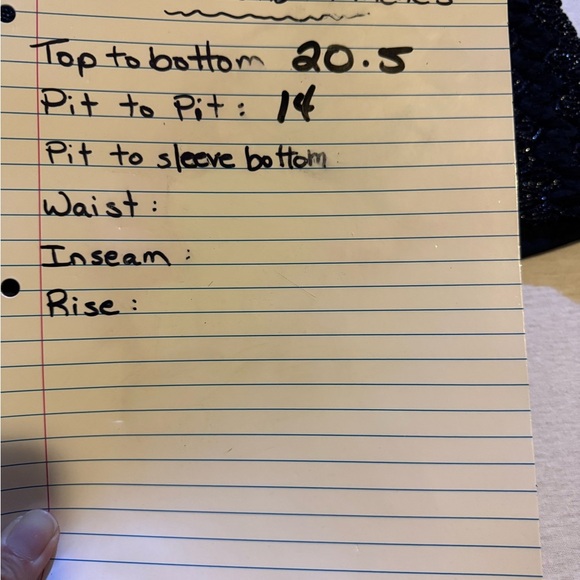 Top to bottom 20.5
Pit to Pit: 14
Pit to sleeve bottom
Waist:
Inseam:
Rise: